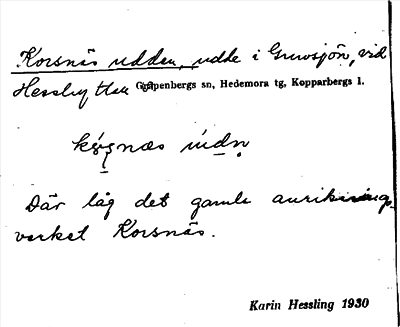 Korsnäs udden, udde i Grusjön, vid
Hesshyttan Garpenbergs sn, Hedemora tg, Kopparbergs l.
Där låg det gamla
verket Korsnäs.
Karin Hessling 1930